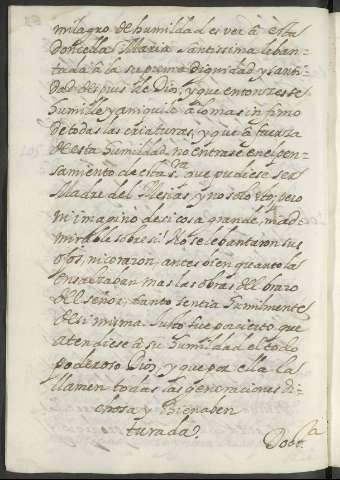 milagro de humildad es ver â esta
Doncella Maria Santissima leban-
tada â la suprema Dignidad y santi-
dad despues de Dios, y que entonzes se
humille y aniquile â lo mas infimo
de todas las criaturas, y que â fuerza
de esta humildad no entrase en el pen-
samiento de esta S.ra que pudiese ser
Madre del Mesias; y no solo esto, pero
ni imagino de si cosa grande, ni ad-
mirable sobre si! No se lebantaron sus
ojos, ni corazon, antes bien quanto la
ensalzaban mas las obras del brazo
del señor, tanto sentia humilmente
de si misma. Justo fue por cierto que
atendiese â su humildad el todo
poderoso Dios, y que por ella la
llamen todas las generaciones di-
chosa y Bienaben
turada.
Doct.a